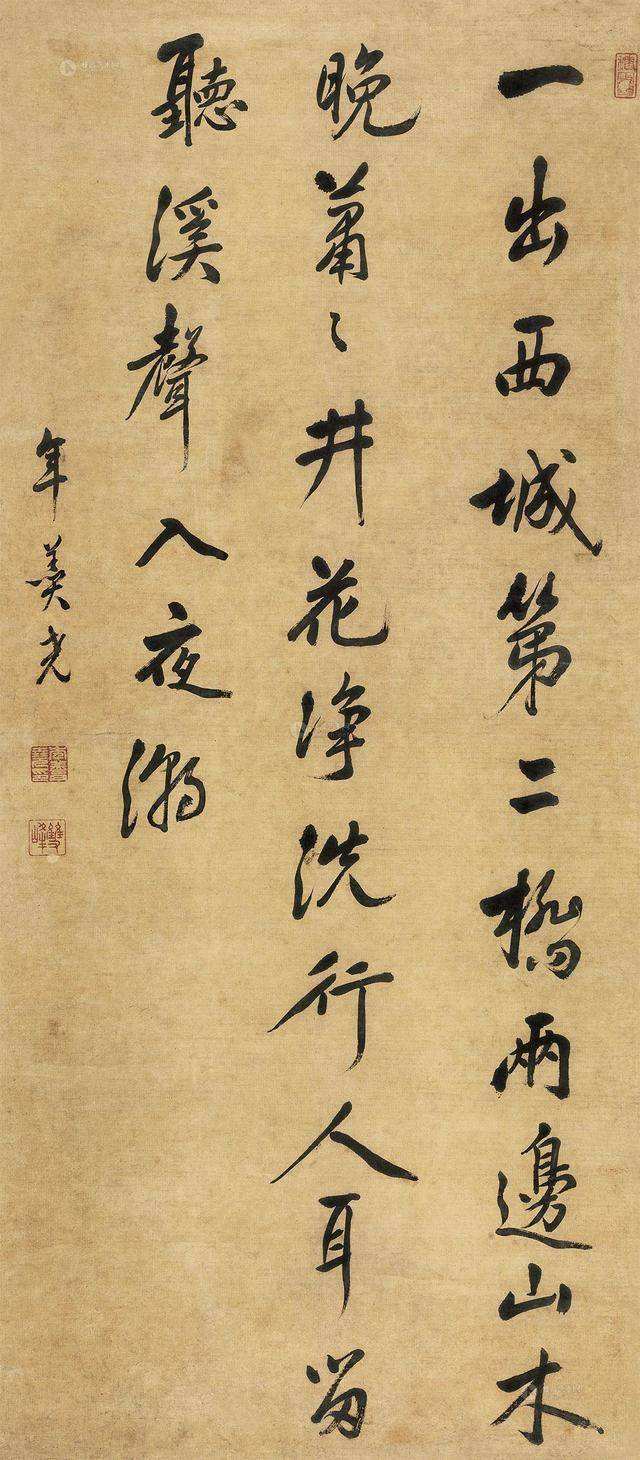 一出西城第二橋兩邊山木
晚蕭〻井花净洗行人耳留
聽溪聲入夜潮
年羹尧
雙峰